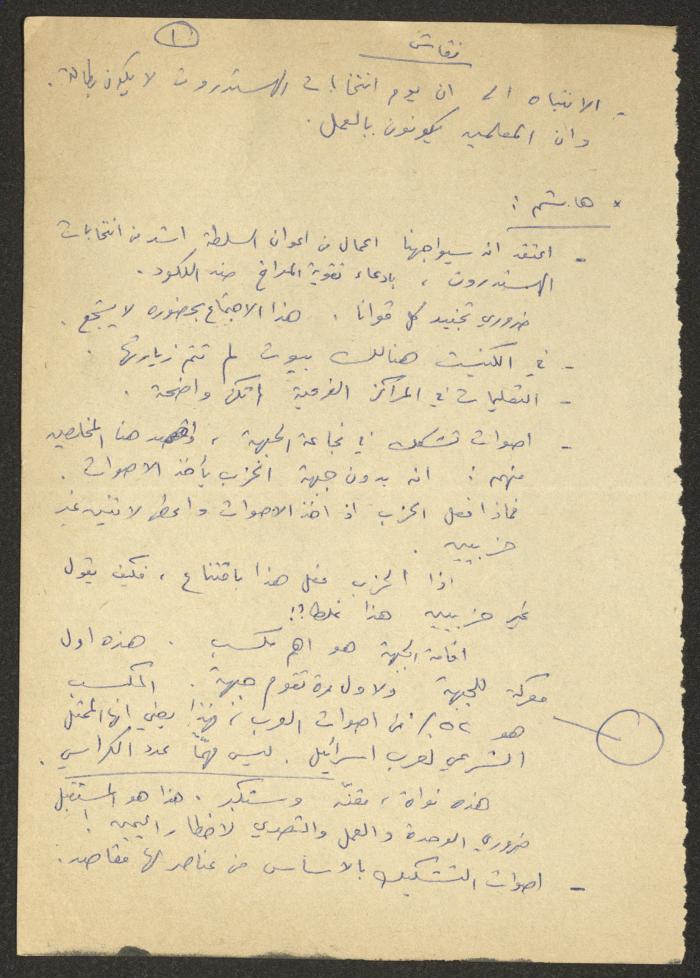 ١
نقاش
- الانتباه الى ان يوم انتخابات الهستدروت لا يكون بطالة.
وان المعلمين يكونون بالعمل.
* هاشم:
- اعتقد انه سيواجهنا اعمال من اعوان السلطة اشد من انتخابات
الهستدروت، بادعاء تقوية المعراخ ضد الليكود.
ضروري تجنيد كل قوانا. هذا الاجتماع بحضوره لا يشجع.
- في الكنيست هنالك بيوت لم تتم زيارتها.
- التعليمات في المراكز الفرعية لم تكن واضحة.
- اصوات تشكك في نجاعة الجبهة، هنا المخلصين
منهم: انه بدون جبهة الحزب يأخذ الاصوات.
فماذا فعل الحزب اذ اخذ الاصوات واعطى لاثنين غير
حزبيين.
اذا الحزب فعل هذا باقتناع، فكيف يقول
غير حزبيين هذا غلط؟!
اقامة الجبهة هو اهم مكسب. هذه اول
معركة للجبهة ولاول مرة تقوم جبهة. المكسب
هو ٥٢٪ من اصوات العرب، فهذا يعني انها الممثل
الشرعي لعرب اسرائيل. ليس مهمًا عدد الكراسي.
هذه نواة، وستكبر. هذا هو المستقبل
ضروري الوحدة والعمل والتصدي لاخطار اليمين!
- اصوات التشكيك بالاساس من عناصر لها مقاصد.